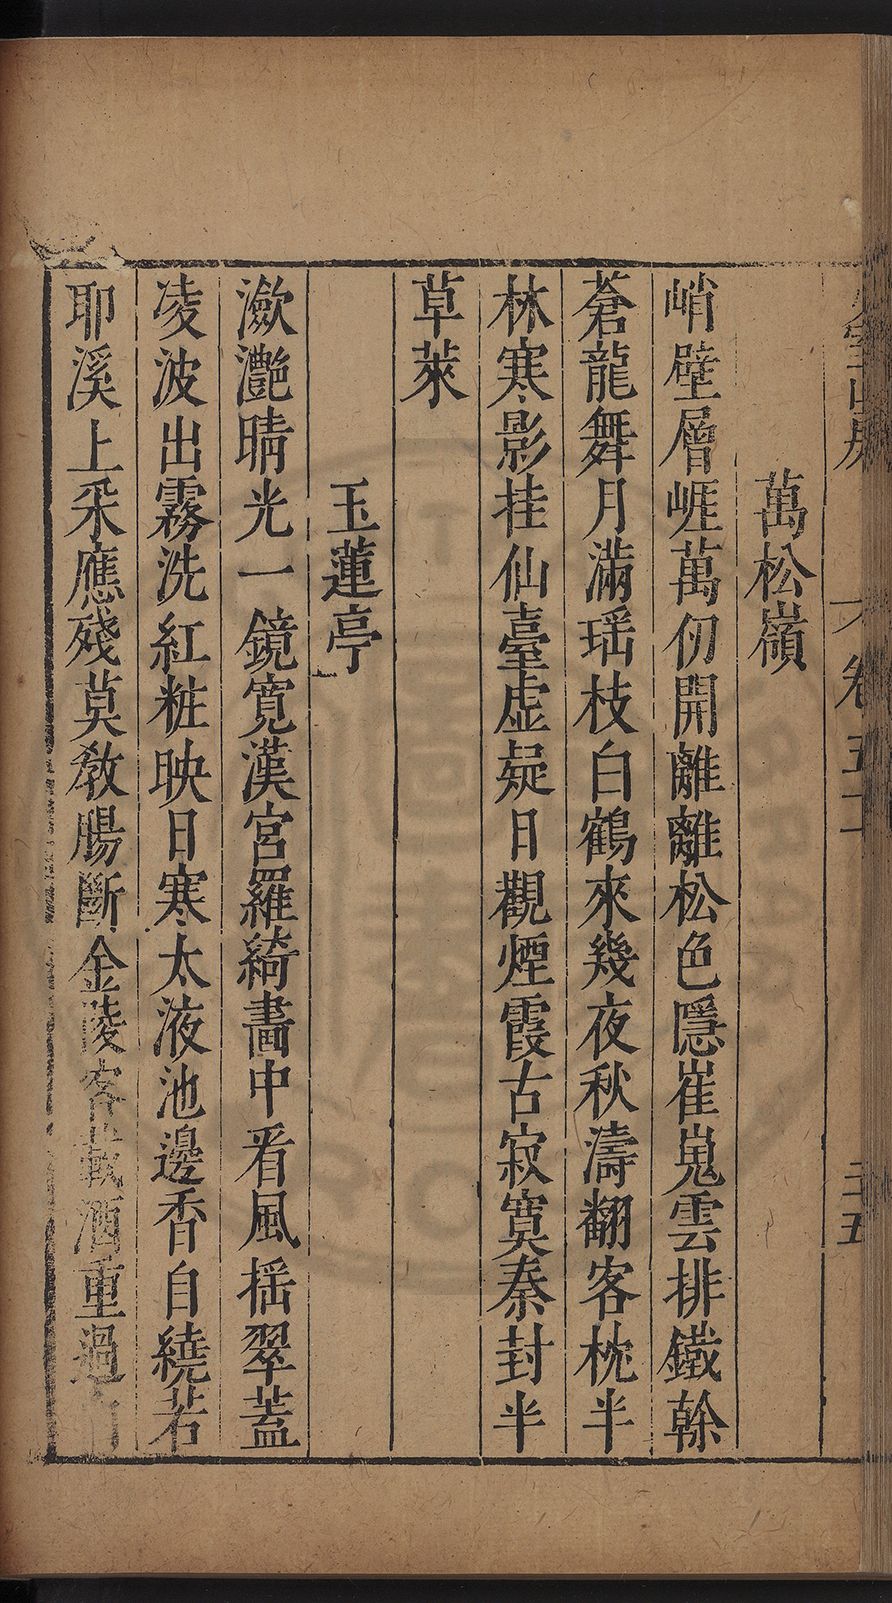 卷五二
三五
萬松嶺
峭壁層崕萬仞開離離松色隱崔嵬雲排鐵幹
蒼龍舞月滿瑶枝白鶴來幾夜秋濤翻客枕半
林寒影挂仙臺虚疑日觀煙霞古寂寞秦封半
草萊
玉蓮亭
瀲灧晴光一鏡寛漢宮羅綺畵中看風揺翠蓋
凌波出霧洗紅粧映日寒太液池邊香自繞若
耶溪上采應殘莫教腸斷金陵客載酒重過